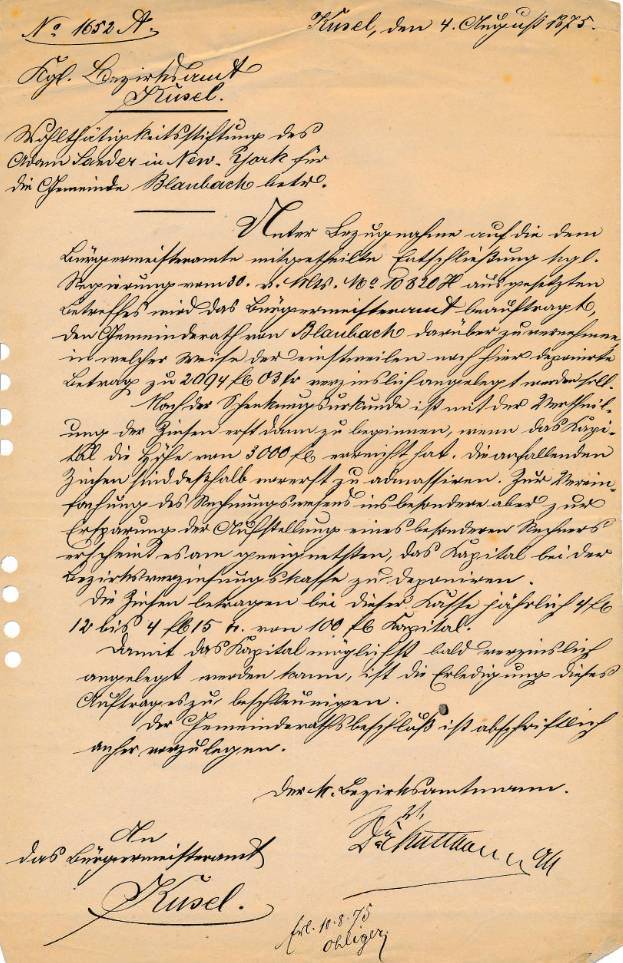 No 1652 A.
Kusel, den 4. August 1875.
Kgl. Bezirksamt
Kusel.
Wohlthätigkeitsstiftung des
Adam Sander in New-York für
die Gemeinde Blaubach betr.
Unter Bezugnahme auf die dem
Bürgermeisteramte mitgetheilte Entschließung kgl.
Regierung vom 30. v. Mts. No 10820 H ausgesetzten
Betreffes wird das Bürgermeisteramt beauftragt,
den Gemeinderath von Blaubach darüber zu vernehmen,
in welcher Weise der einstweilen noch hier deponirte
Betrag zu 2094 fl 03 kr verzinslich angelegt werden soll.
Nach der Schenkungsurkunde ist mit der Vertheil-
ung der Zinsen erst dann zu beginnen, wenn das Kapi-
tal die Höhe von 3000 fl erreicht hat. Die anfallenden
Zinsen sind deßhalb vorerst zu admassiren. Zur Verein-
fachung des Rechnungswesens insbesondere aber zur
Ersparung der Aufstellung eines besonderen Rechners
erscheint es am geeignetsten, das Kapital bei der
Bezirks kasse zu deponiren.
Die Zinsen betragen bei dieser Kasse jährlich 4 fl
12 bis 4 fl 15 kr. von 100 fl Kapital.
Damit das Kapital möglichst bald verzinslich
angelegt werden kann, ist die Erledigung dieses
Auftrages zu beschleunigen.
Der Gemeinderathsbeschluß ist abschriftlich
anher vorzulegen.
Der k. Bezirksamtmann.
An
das Bürgermeisteramt
Kusel.
Erl. 10.8.75
Ohliger